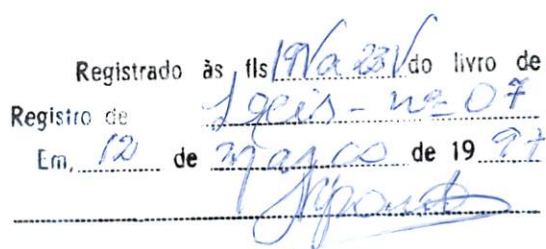 Registrado às fls 19V a 23V do livro de
Registro de Leis - nº 07
Em, 12 de março de 1997